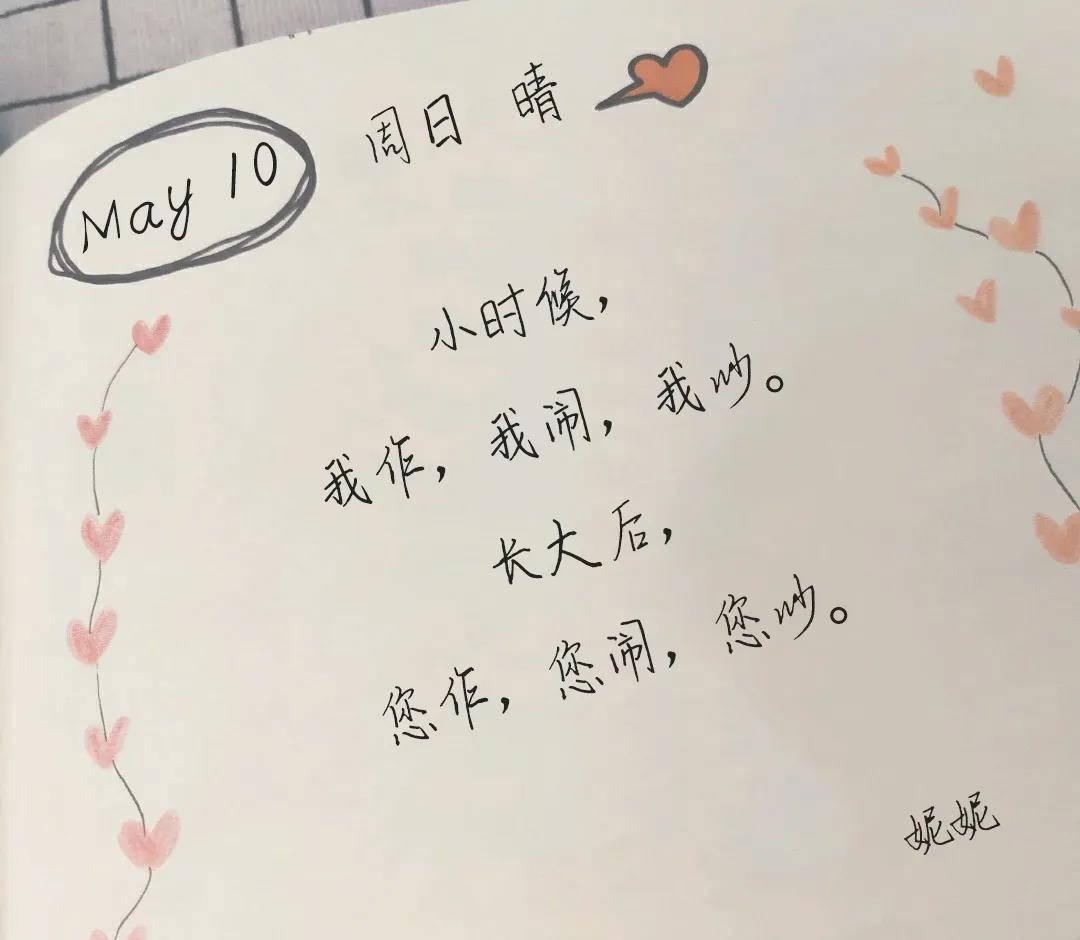 May 10 周日 晴
小时候，
我作，我闹，我吵。
长大后，
您作，您闹，您吵。
妮妮